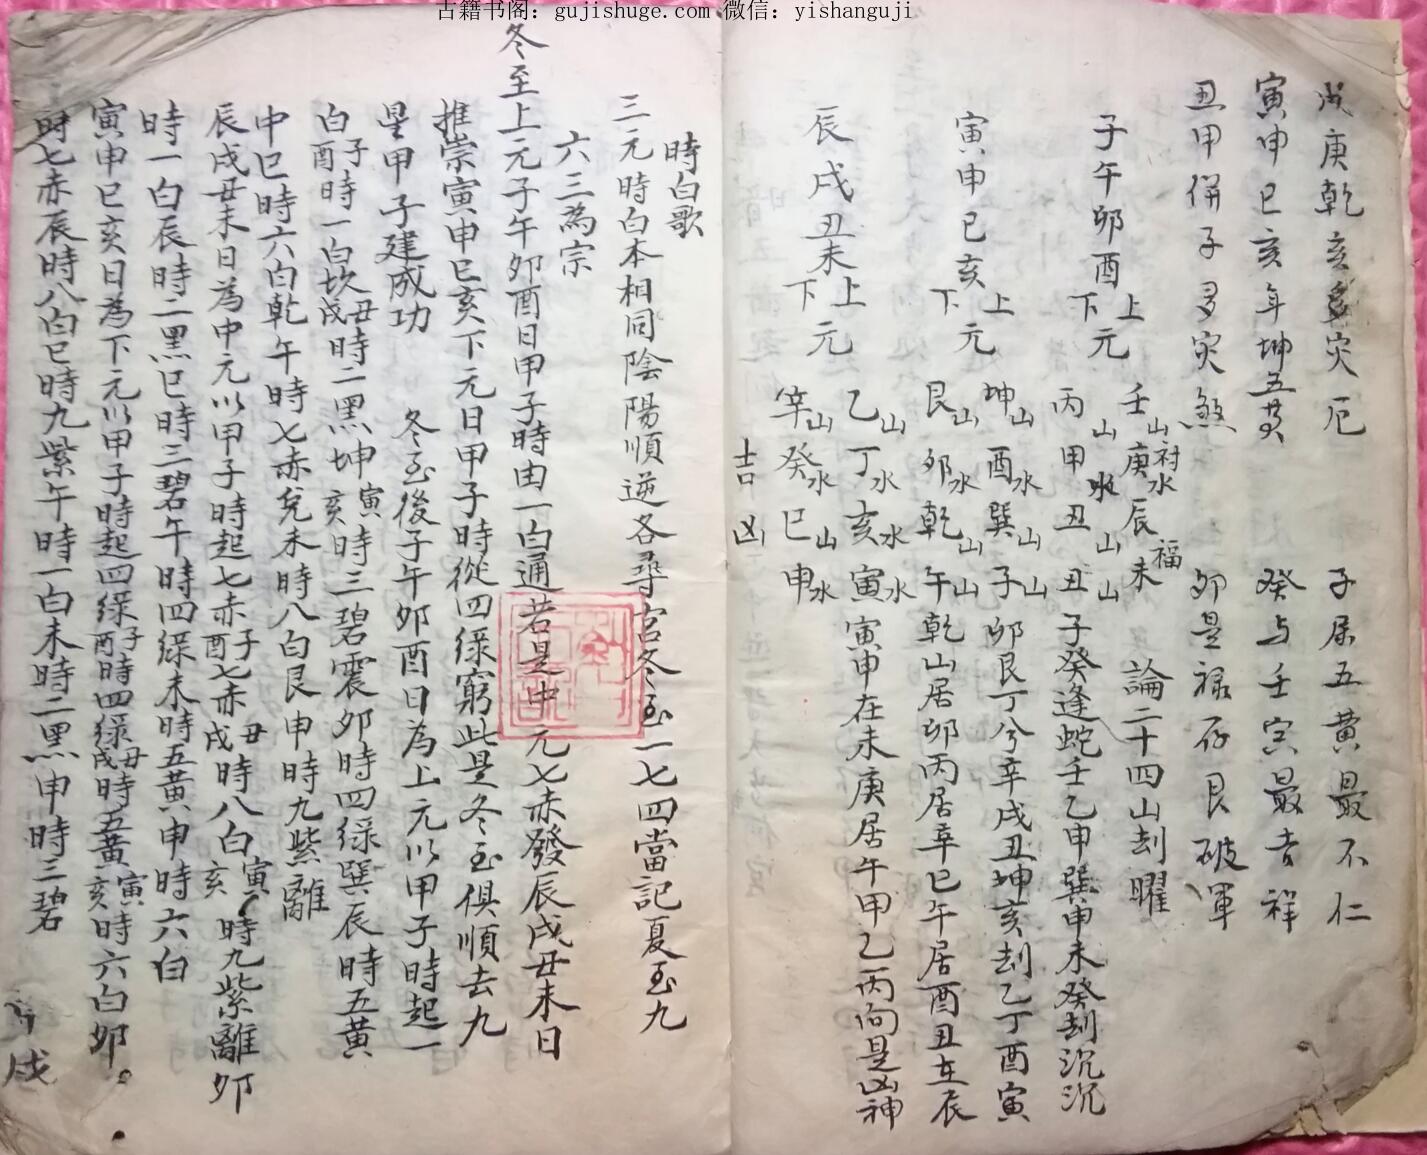 古籍书阁：gujishuge.com 微信：yishanguji
戌庚乾亥多灾厄 子居五黄最不仁
寅申巳亥年坤五黄 癸与壬宫最吉祥
丑甲併子多灾煞 卯是禄存艮破軍
子午卯酉上下元 壬山庚水辰未 論二十四山刦曜
丙山甲水丑山丑山子癸逢蛇壬乙申巽申未癸刦沉沉
寅申巳亥上下元 坤山酉水巽山子山卯艮丁兮辛戌丑坤亥刦乙丁酉寅
艮山卯水乾山午山乾山居卯丙居辛巳午居酉丑在辰
辰戌丑未上下元 乙山丁水亥水寅水寅申在未庚居午甲乙丙向是凶神
辛山癸水巳山申水
吉凶
時白歌
三元時白本相同陰陽順逆各尋宮冬至一七四當記夏至九
六三為宗
冬至上元子午卯酉日甲子時由一白通若是中元七赤發辰戌丑未日
推崇寅申巳亥下元日甲子時從四緑窮此是冬至俱順去九
星甲子建成功 冬至後子午卯酉日為上元以甲子時起一
白子酉時一白坎丑戌時二黑坤寅亥時三碧震卯時四緑巽辰時五黄
中巳時六白乾午時七赤兌未時八白艮申時九紫離
辰戌丑未日為中元以甲子時起七赤子酉七赤丑戌時八白寅亥時九紫離卯
時一白辰時二黑巳時三碧午時四緑未時五黄申時六白
寅申巳亥日為下元以甲子時起四緑子酉時四緑丑戌時五黄寅亥時六白卯
時七赤辰時八白巳時九紫午時一白未時二黑申時三碧